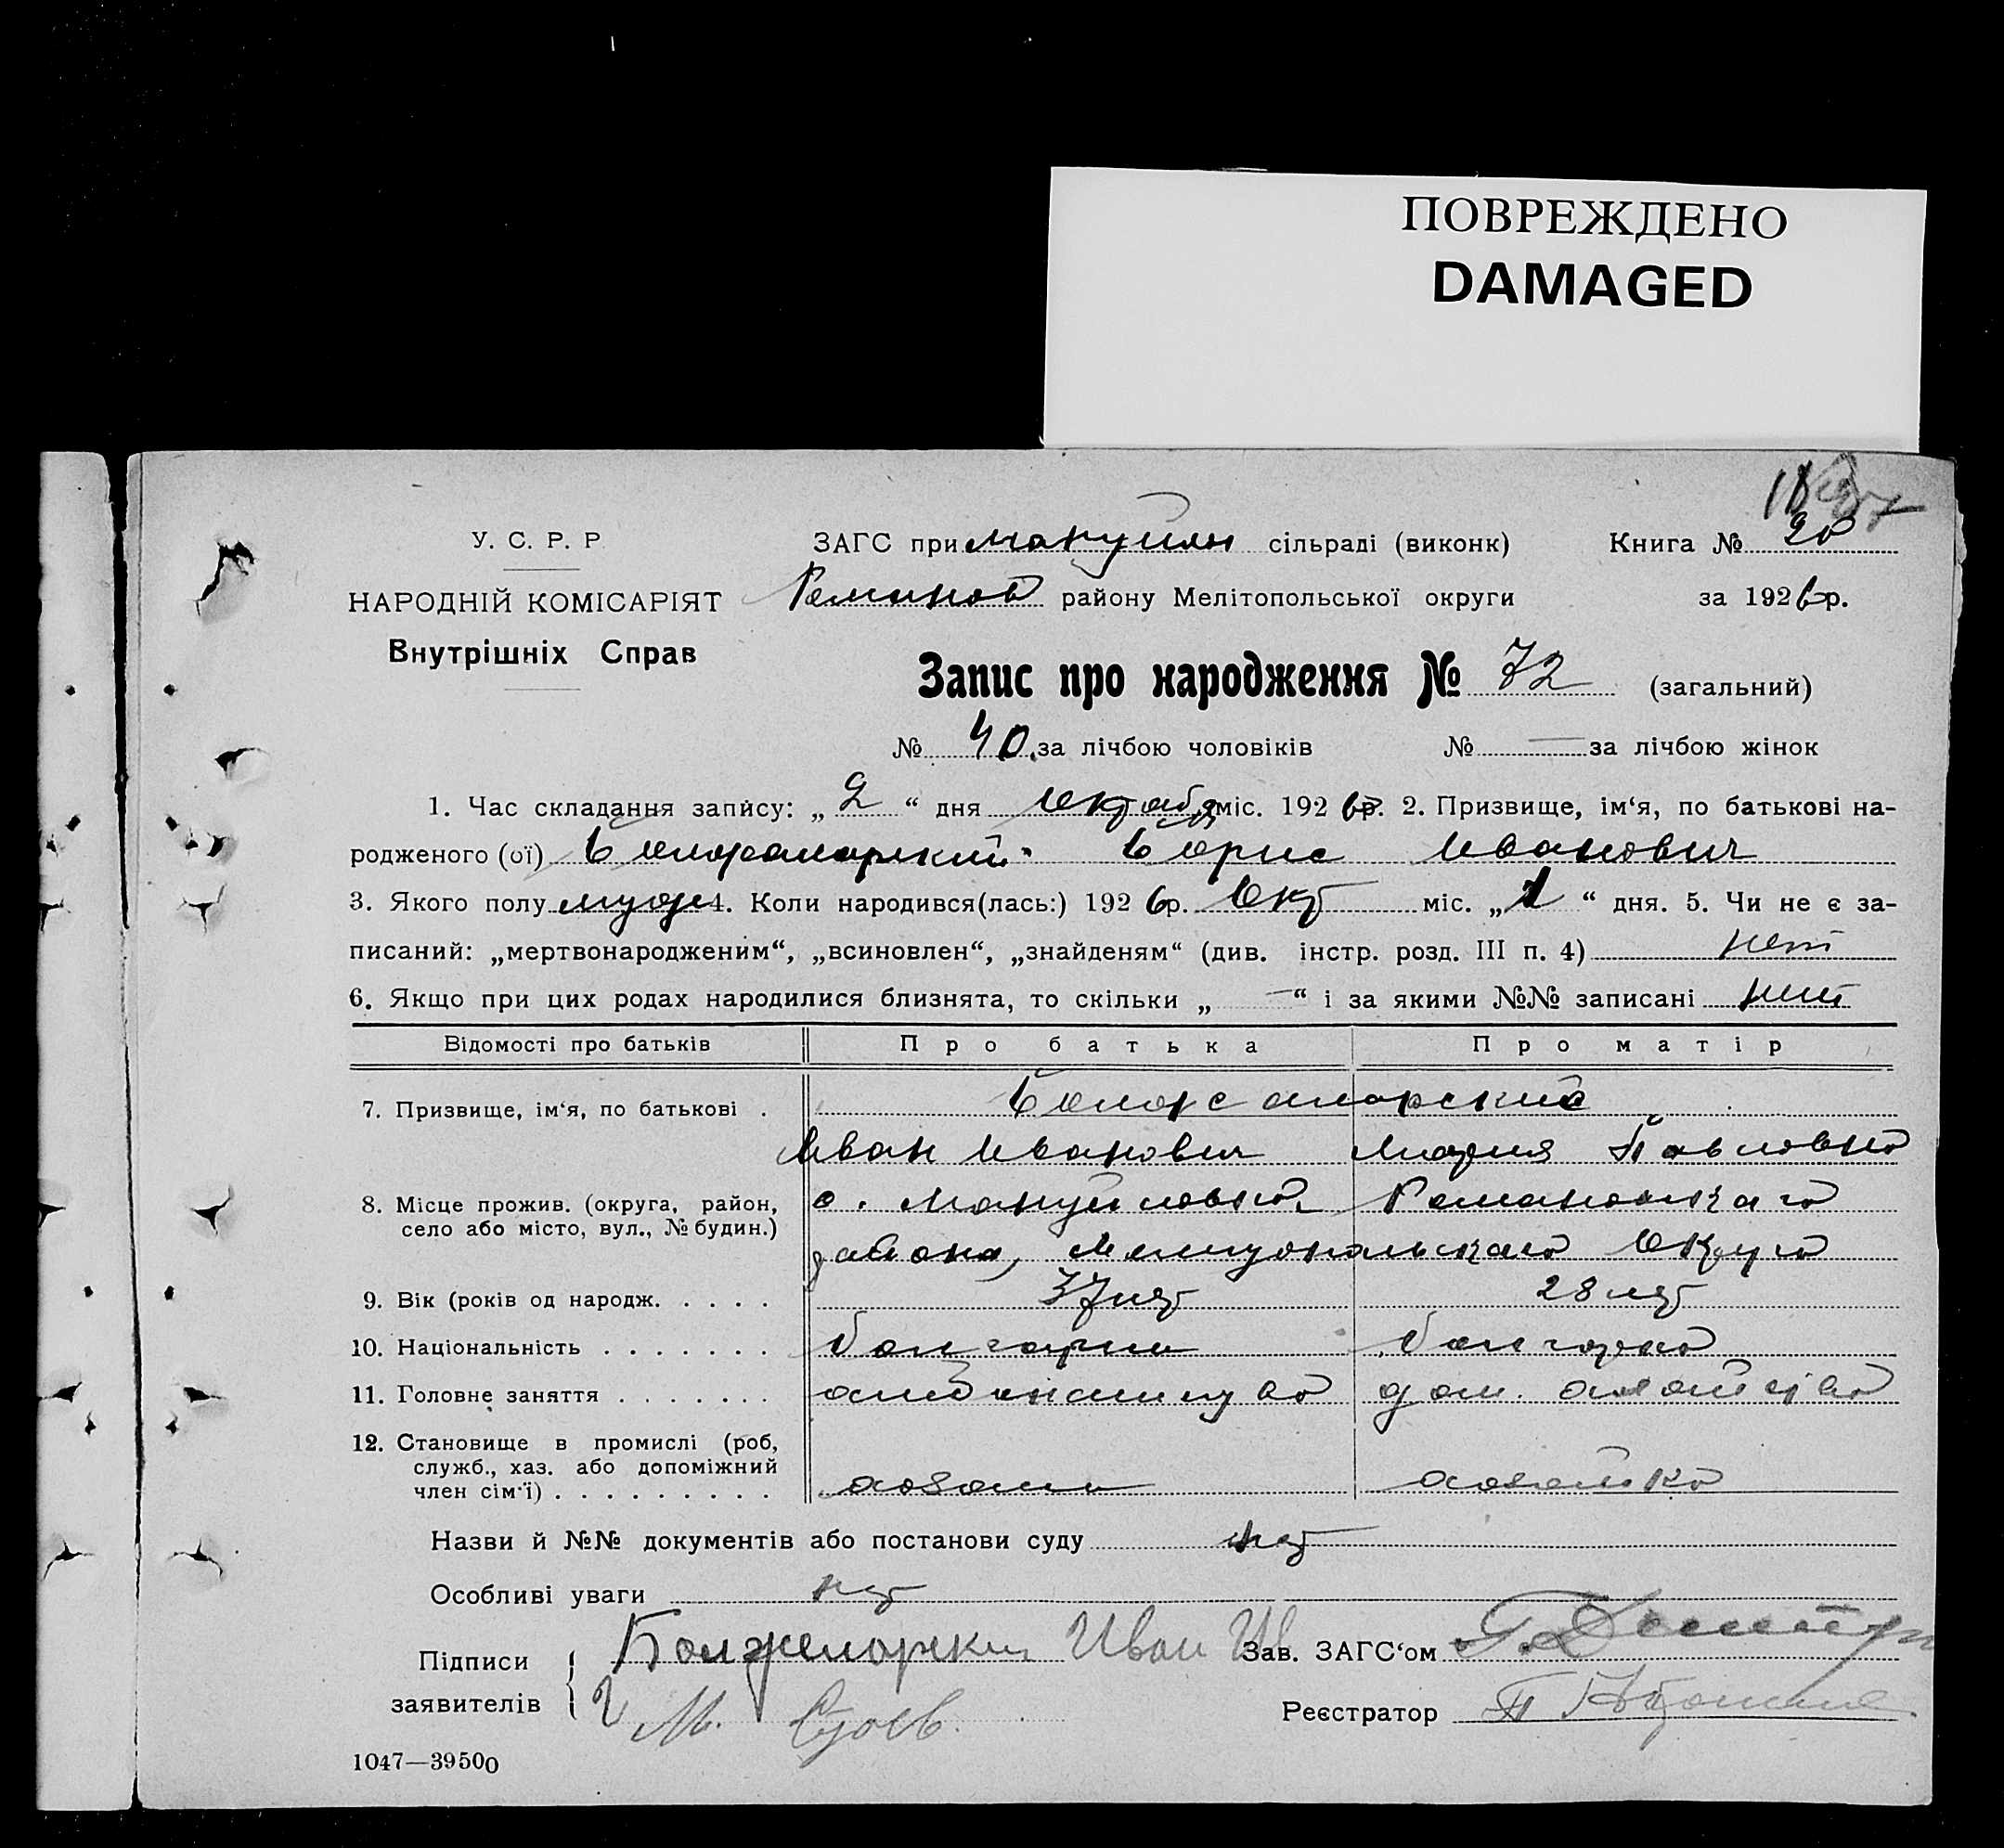 ПОВРЕЖДЕНО
DAMAGED
У. С. Р. Р
НАРОДНІЙ КОМІСАРІЯТ
Внутрішніх Справ
ЗАГС при Мануйлов сільраді (виконк) Книга № 20
Романов району Мелітопольської округи за 1926 р.
Запис про народження № 72 (загальний)
№ 40 за лічбою чоловіків № — за лічбою жінок
1. Час складання запису: „ 2 “ дня Октября міс. 1926 р. 2. Призвище, ім‘я, по батькові на-
родженого (ої) Борис Иванович
3. Якого полу муж 4. Коли народився(лась:) 1926 р. Окт міс. „ 1 “ дня. 5. Чи не є за-
писаний: „мертвонародженим“, „всиновлен“, „знайденям“ (див. інстр. розд. III п. 4) нет
6. Якщо при цих родах народилися близнята, то скільки „ — “ і за якими №№ записані нет
Відомості про батьків Про батька Про матір
7. Призвище, ім‘я, по батькові .
Иван Иванович Мария Павловна
8. Місце прожив. (округа, район,
село або місто, вул., № будин.)
с. Мануйловка Романовскаго
района, Мелитопольскаго Округа
9. Вік (років од народж. . . . . 37 лет 28 лет
10. Національність . . . . . . . болгарин болгарка
11. Головне заняття . . . . . . . дом. хозяйка
12. Становище в промислі (роб,
служб., хаз. або допоміжний
член сім‘ї) . . . . . . . . . хозяин хозяйка
Назви й №№ документів або постанови суду нет
Особливі уваги нет
Підписи
заявителів
Иван Ив
Зав. ЗАГС‘ом
М.
Реєстратор
1047—39500